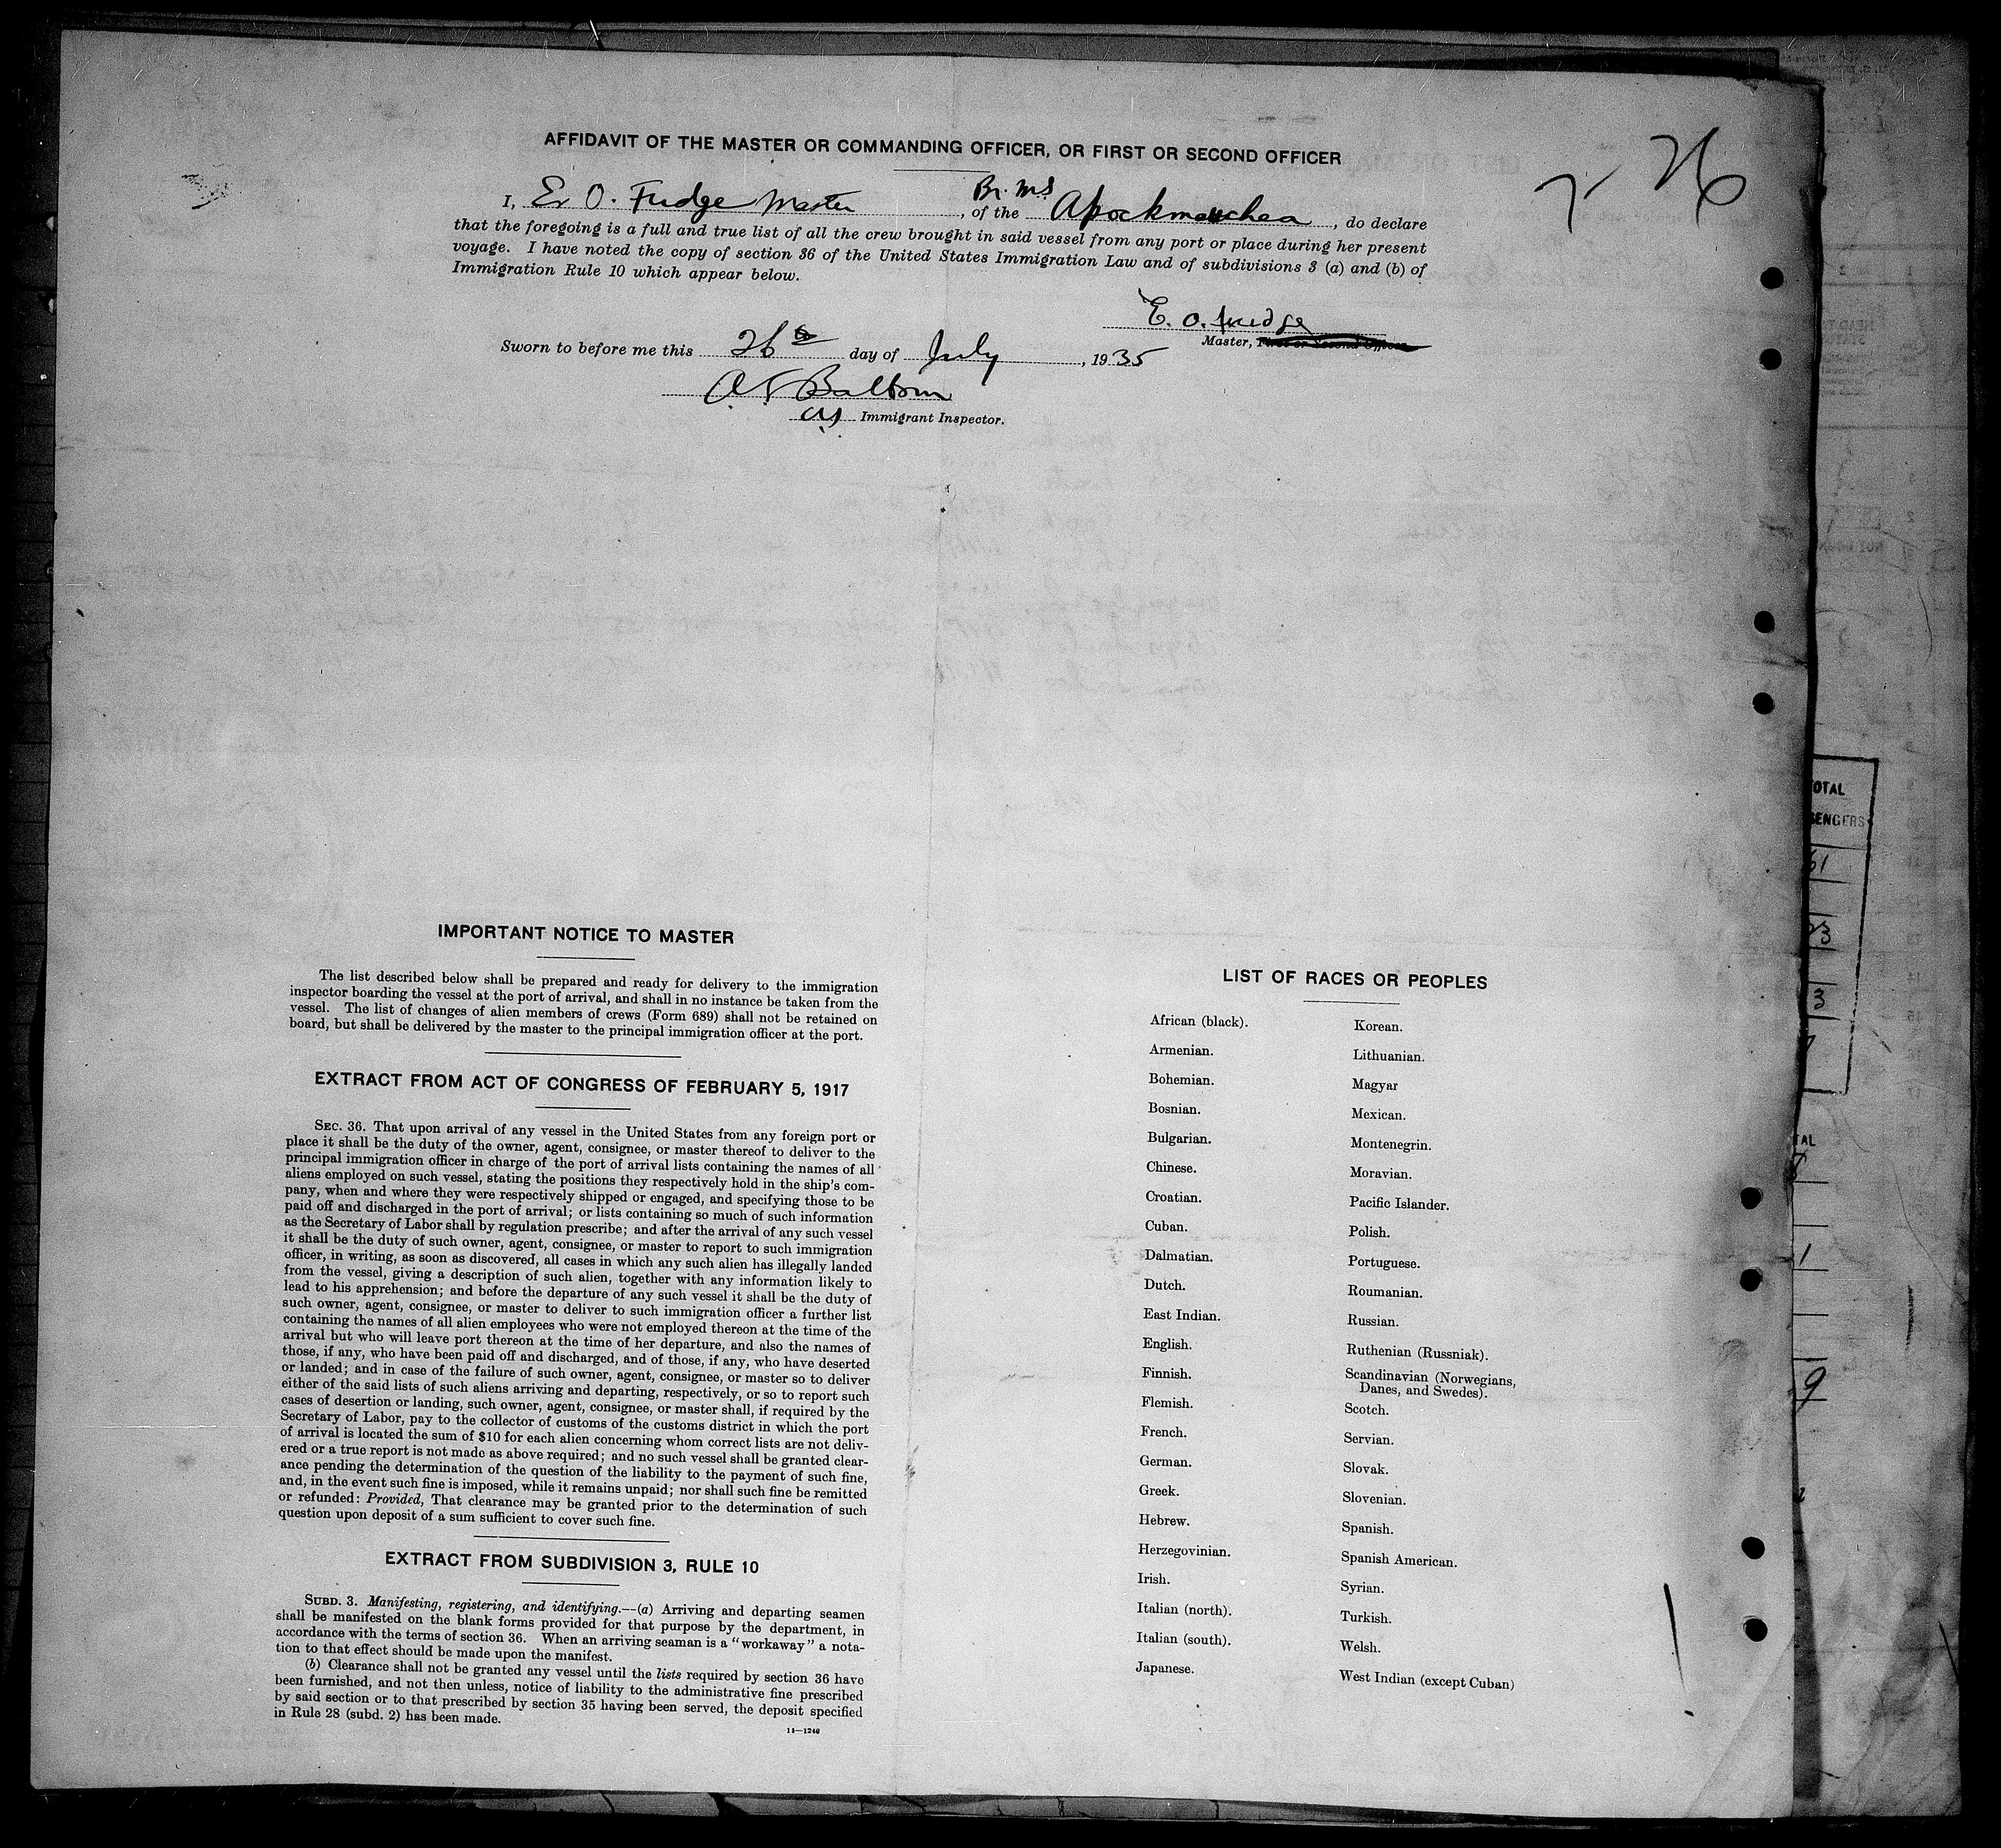 AFFIDAVIT OF THE MASTER OR COMMANDING OFFICER, OR FIRST OR SECOND OFFICER
I, E. O. Fudge Master, of the Br. M.S Apockmouchea, do declare
that the foregoing is a full and true list of all the crew brought in said vessel from any port or place during her present
voyage. I have noted the copy of section 36 of the United States Immigration Law and of subdivisions 3 (a) and (b) of
Immigration Rule 10 which appear below.
E. O. Fudge
Master, First or Second Officer.
Sworn to before me this 26th day of July, 1935
Immigrant Inspector.
IMPORTANT NOTICE TO MASTER
The list described below shall be prepared and ready for delivery to the immigration
inspector boarding the vessel at the port of arrival, and shall in no instance be taken from the
vessel. The list of changes of alien members of crews (Form 689) shall not be retained on
board, but shall be delivered by the master to the principal immigration officer at the port.
EXTRACT FROM ACT OF CONGRESS OF FEBRUARY 5, 1917
SEC. 36. That upon arrival of any vessel in the United States from any foreign port or
place it shall be the duty of the owner, agent, consignee, or master thereof to deliver to the
principal immigration officer in charge of the port of arrival lists containing the names of all
aliens employed on such vessel, stating the positions they respectively hold in the ship's com-
pany, when and where they were respectively shipped or engaged, and specifying those to be
paid off and discharged in the port of arrival; or lists containing so much of such information
as the Secretary of Labor shall by regulation prescribe; and after the arrival of any such vessel
it shall be the duty of such owner, agent, consignee, or master to report to such immigration
officer, in writing, as soon as discovered, all cases in which any such alien has illegally landed
from the vessel, giving a description of such alien, together with any information likely to
lead to his apprehension; and before the departure of any such vessel it shall be the duty of
such owner, agent, consignee, or master to deliver to such immigration officer a further list
containing the names of all alien employees who were not employed thereon at the time of the
arrival but who will leave port thereon at the time of her departure, and also the names of
those, if any, who have been paid off and discharged, and of those, if any, who have deserted
or landed; and in case of the failure of such owner, agent, consignee, or master so to deliver
either of the said lists of such aliens arriving and departing, respectively, or so to report such
cases of desertion or landing, such owner, agent, consignee, or master shall, if required by the
Secretary of Labor, pay to the collector of customs of the customs district in which the port
of arrival is located the sum of $10 for each alien concerning whom correct lists are not deliv-
ered or a true report is not made as above required; and no such vessel shall be granted clear-
ance pending the determination of the question of the liability to the payment of such fine,
and, in the event such fine is imposed, while it remains unpaid; nor shall such fine be remitted
or refunded: Provided, That clearance may be granted prior to the determination of such
question upon deposit of a sum sufficient to cover such fine.
EXTRACT FROM SUBDIVISION 3, RULE 10
SUBD. 3. Manifesting, registering, and identifying.—(a) Arriving and departing seamen
shall be manifested on the blank forms provided for that purpose by the department, in
accordance with the terms of section 36. When an arriving seaman is a "workaway" a nota-
tion to that effect should be made upon the manifest.
(b) Clearance shall not be granted any vessel until the lists required by section 36 have
been furnished, and not then unless, notice of liability to the administrative fine prescribed
by said section or to that prescribed by section 35 having been served, the deposit specified
in Rule 28 (subd. 2) has been made.
11—1240
LIST OF RACES OR PEOPLES
African (black).
Armenian.
Bohemian.
Bosnian.
Bulgarian.
Chinese.
Croatian.
Cuban.
Dalmatian.
Dutch.
East Indian.
English.
Finnish.
Flemish.
French.
German.
Greek.
Hebrew.
Herzegovinian.
Irish.
Italian (north).
Italian (south).
Japanese.
Korean.
Lithuanian.
Magyar
Mexican.
Montenegrin.
Moravian.
Pacific Islander.
Polish.
Portuguese.
Roumanian.
Russian.
Ruthenian (Russniak).
Scandinavian (Norwegians,
Danes, and Swedes).
Scotch.
Servian.
Slovak.
Slovenian.
Spanish.
Spanish American.
Syrian.
Turkish.
Welsh.
West Indian (except Cuban)